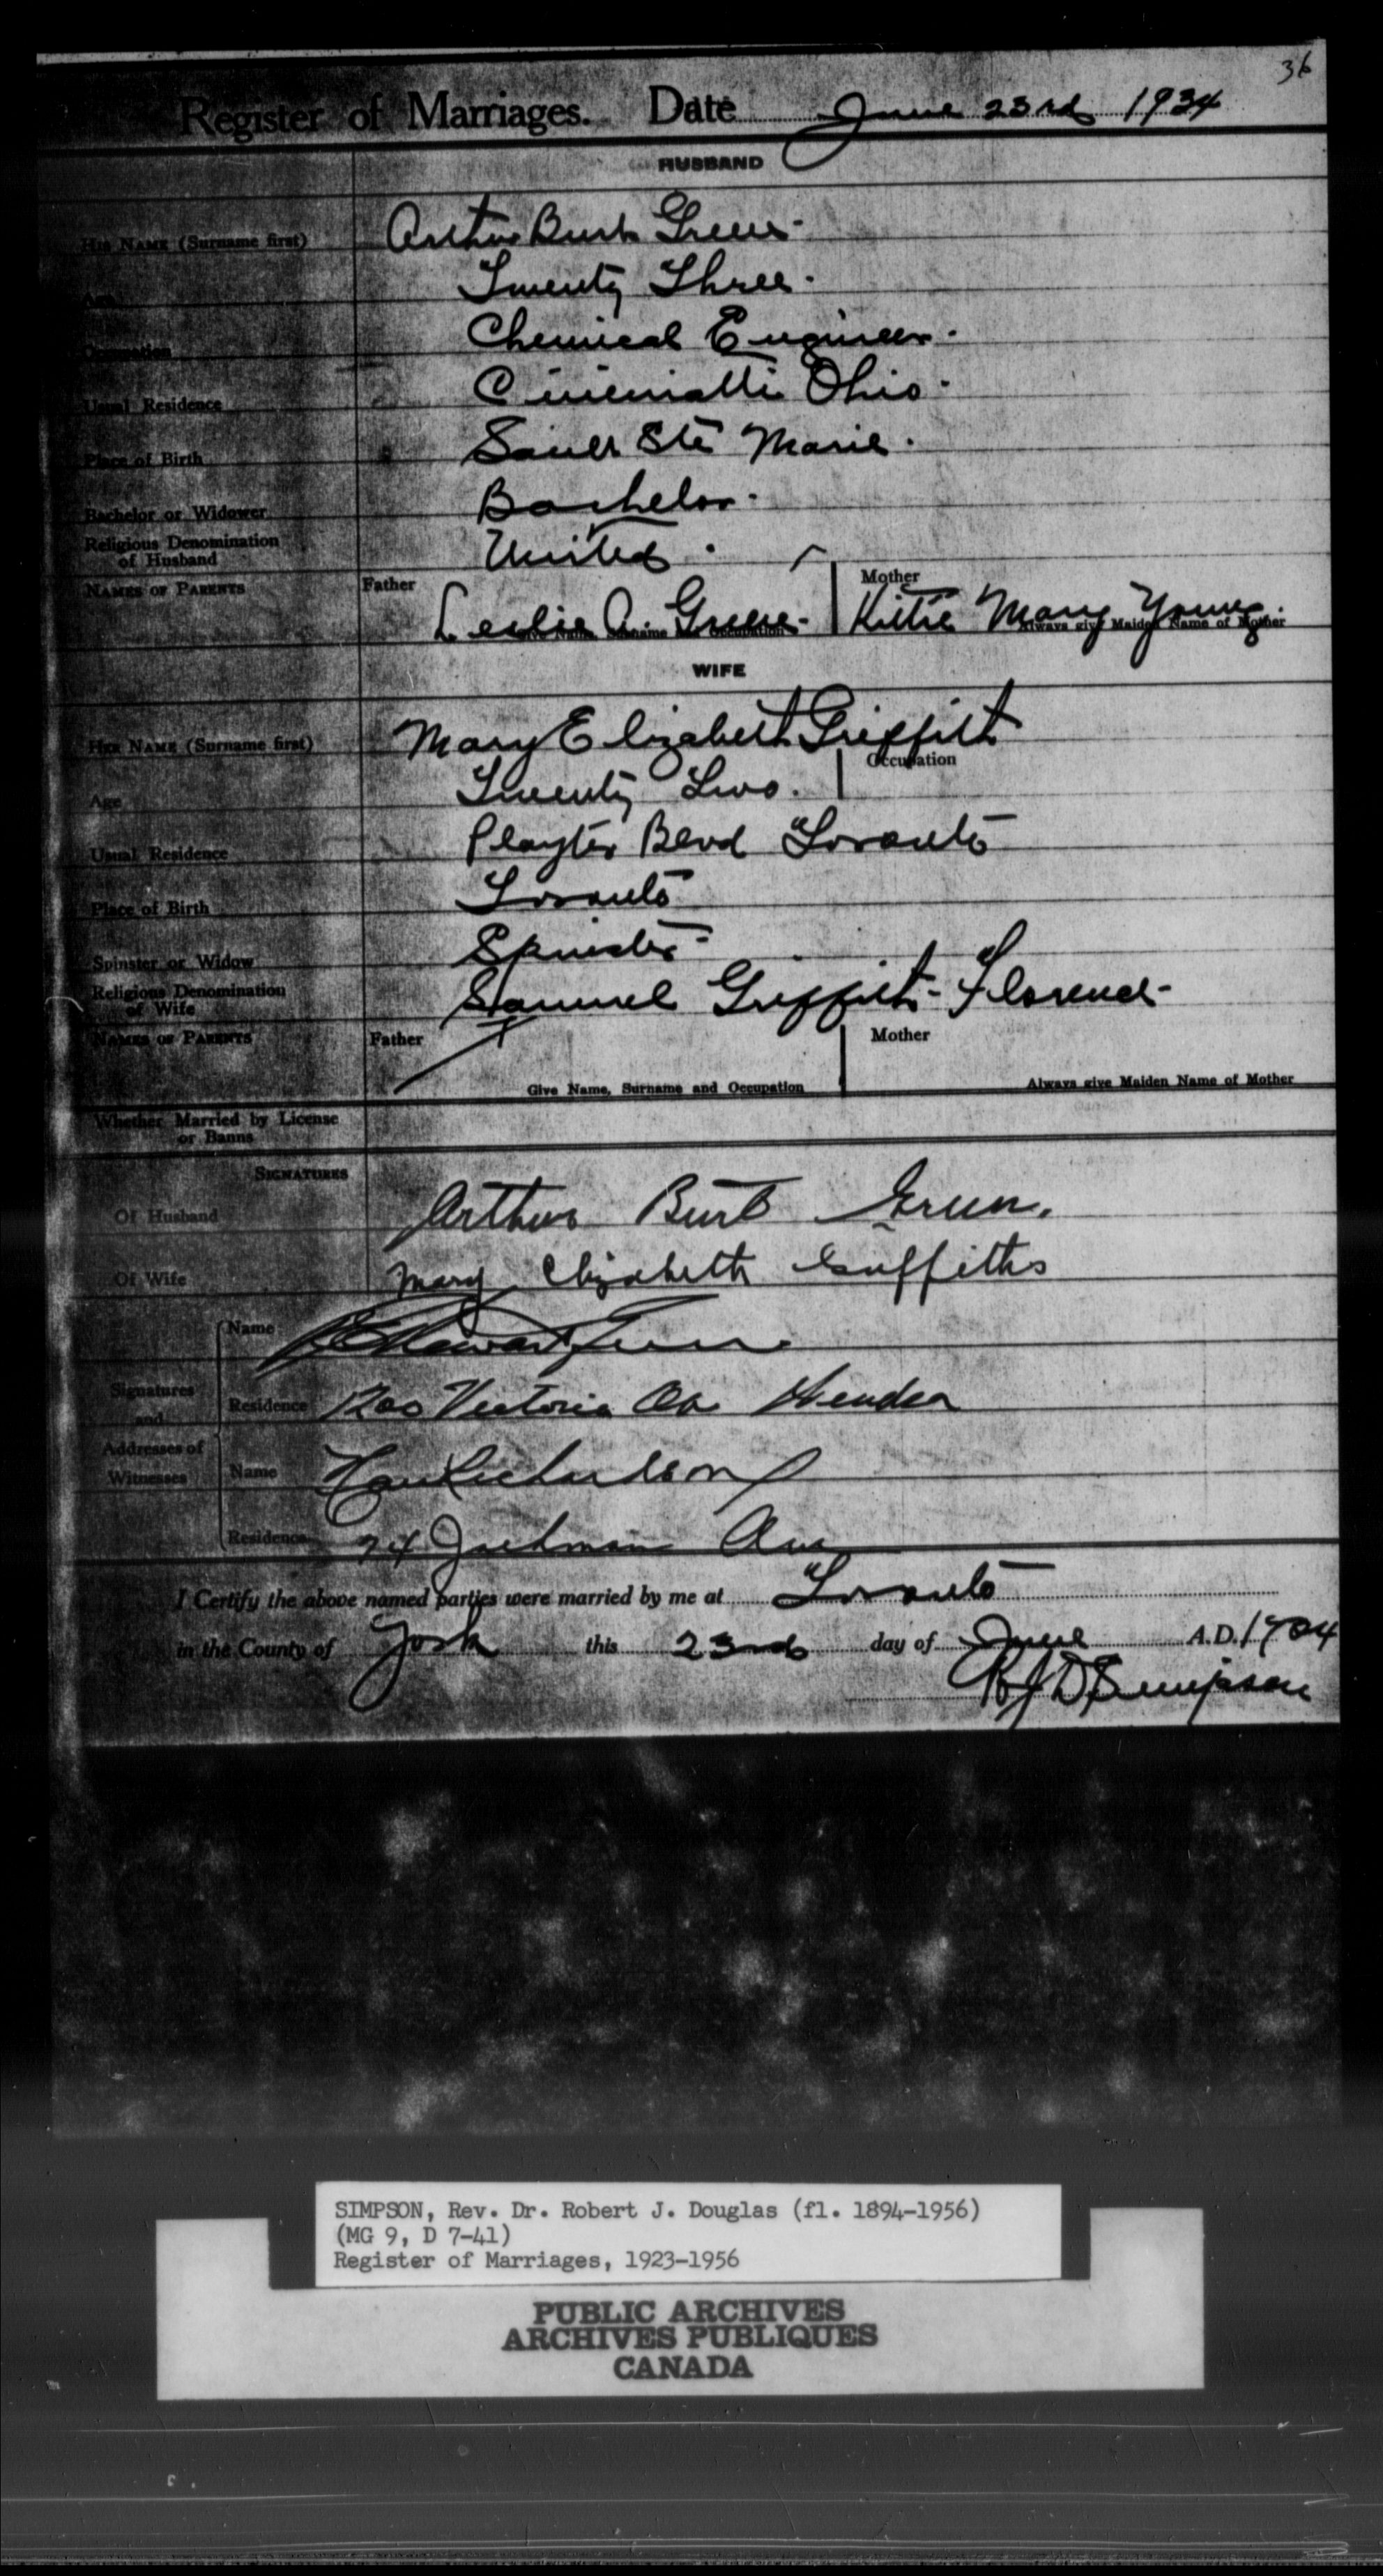 36
Register of Marriages. Date June 23rd 1934
HUSBAND
His Name (Surname first) Arthur Burt Green
Age Twenty Three.
Occupation Chemical Engineer.
Usual Residence Cincinnatti Ohio.
Place of Birth Sault Ste Marie.
Bachelor or Widower Bachelor.
Religious Denomination of Husband United.
Names of Parents Father Leslie A. Greene Mother Kittie Mary Young.
Give Name, Surname and Occupation Always give Maiden Name of Mother
WIFE
Her Name (Surname first) Mary Elizabeth Griffith
Age Twenty Two. Occupation
Usual Residence Playter Blvd Toronto
Place of Birth Toronto
Spinster or Widow Spinster
Religious Denomination of Wife Samuel Griffith - Florence -
Names of Parents Father Mother
Give Name, Surname and Occupation Always give Maiden Name of Mother
Whether Married by License
or Banns
Signatures
Of Husband Arthur Burt Green.
Of Wife Mary Elizabeth Griffiths
Name
Signatures and Addresses of Witnesses
Residence Victoria Av
Name Richardson
Residence 74 Jackman Ave
I Certify the above named parties were married by me at Toronto
in the County of York this 23rd day of June A.D. 1934
R J D Simpson
SIMPSON, Rev. Dr. Robert J. Douglas (fl. 1894-1956)
(MG 9, D 7-41)
Register of Marriages, 1923-1956
PUBLIC ARCHIVES
ARCHIVES PUBLIQUES
CANADA